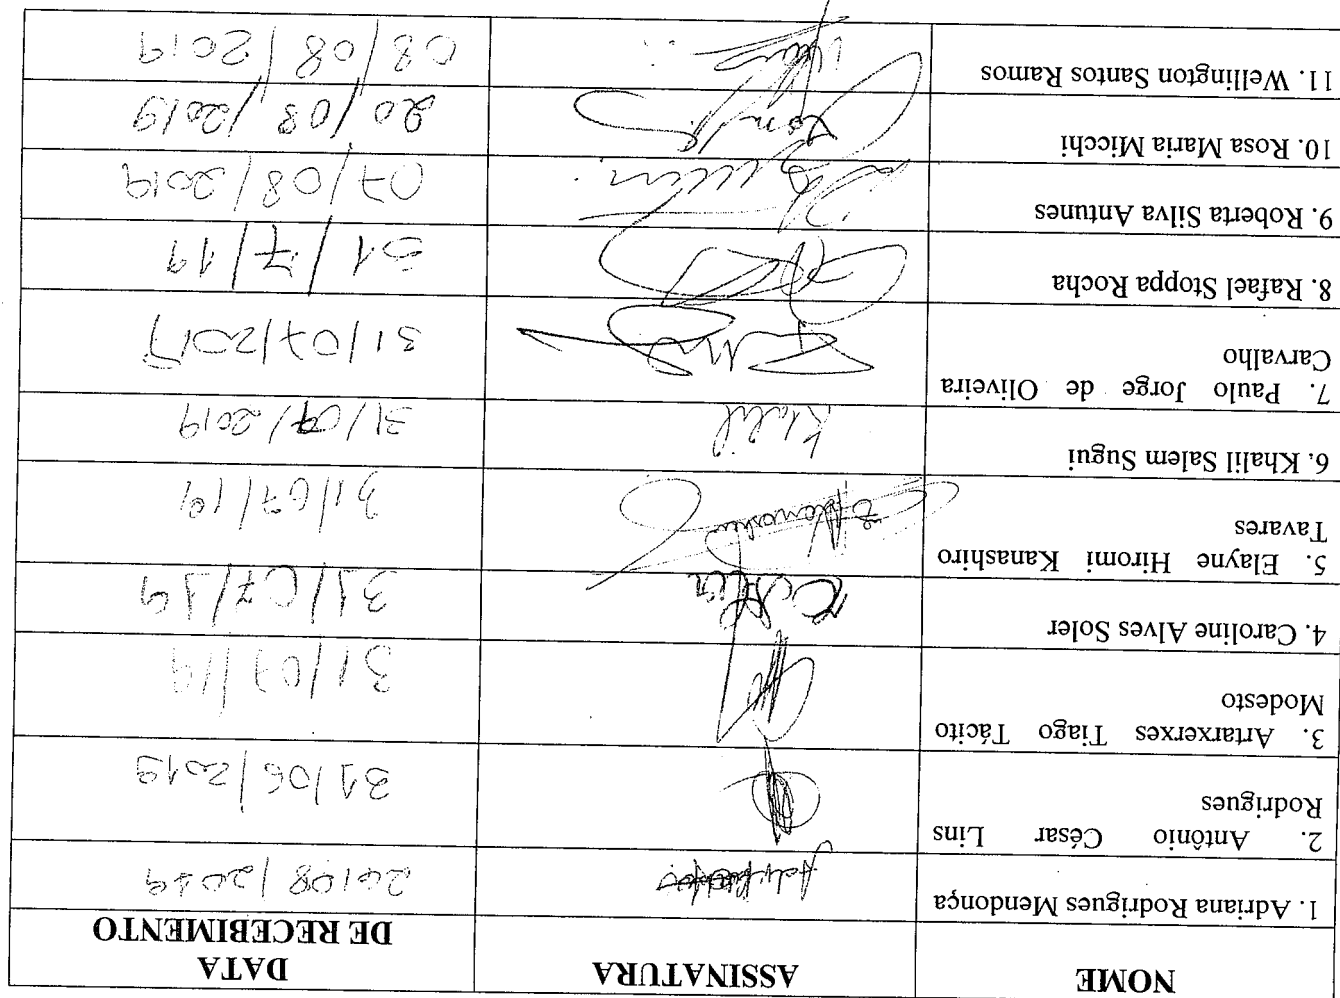 NOME
ASSINATURA
DATA
DE RECEBIMENTO
1. Adriana Rodrigues Mendonça
20/08/2019
2. Antônio César Lins
Rodrigues
31/06/2019
3. Artarxerxes Tiago Tácito
Modesto
31/07/19
4. Caroline Alves Soler
31/07/19
5. Elayne Hiromi Kanashiro
Tavares
31/07/19
6. Khalil Salem Sugui
Khalil
31/07/2019
7. Paulo Jorge de Oliveira
Carvalho
31/07/2019
8. Rafael Stoppa Rocha
31/7/19
9. Roberta Silva Antunes
07/08/2019
10. Rosa Maria Micchi
20/08/2019
11. Wellington Santos Ramos
08/08/2019